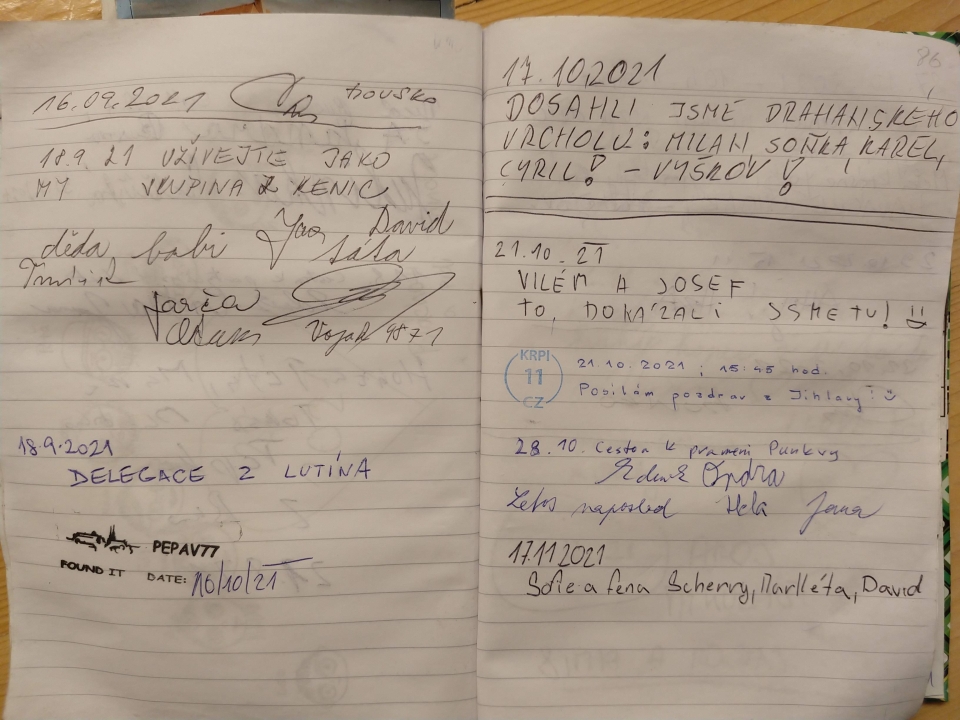 16.09.2021
18.9.21 UŽÍVEJTE JAKO
MY SKUPINA Z KENIC
děda, babi Jan David
Táta
Jarča
Vojak 9871
18.9.2021
DELEGACE Z LUTÍNA
PEPAV77
FOUND IT DATE: 10/10/21
86
17.10.2021
DOSAHLI JSME DRAHANSKÉHO
VRCHOLU: MILAN SOŇKA, KAREL,
CYRIL! – VYŠKOV!
21.10.21
VILÉM A JOSEF
TO, DOKÁZALI JSME TU!
KRPI
11
CZ
21.10.2021 ; 15:45 hod.
Posílám pozdrav z Jihlavy!
28.10. Cestou k prameni Punkvy
Zdeněk Ondra
Letos naposled Hela Jana
17.11.2021
Sofie a fena Scherry, Markéta, David